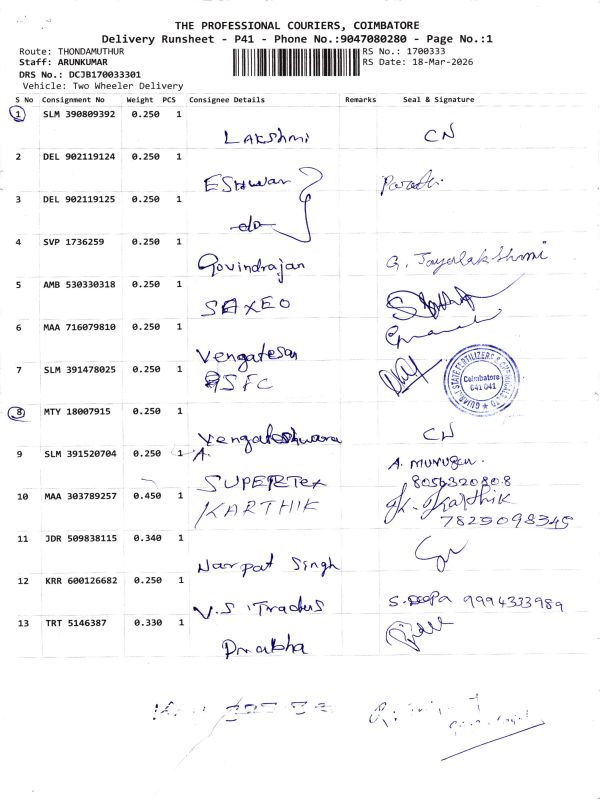 THE PROFESSIONAL COURIERS, COIMBATORE
Delivery Runsheet - P41 - Phone No.:9047080280 - Page No.:1
Route: THONDAMUTHUR RS No.: 1700333
Staff: ARUNKUMAR RS Date: 18-Mar-2026
DRS No.: DCJB170033301
Vehicle: Two Wheeler Delivery
S No Consignment No Weight PCS Consignee Details Remarks Seal & Signature
1 SLM 390809392 0.250 1
Lakshmi CN
2 DEL 902119124 0.250 1
Eshwar
3 DEL 902119125 0.250 1
do
4 SVP 1736259 0.250 1
Govindrajan G. Jayalakshmi
5 AMB 530330318 0.250 1
SAXEO
6 MAA 716079810 0.250 1
Vengatesan
7 SLM 391478025 0.250 1
GSFC
Coimbatore
641 041
8 MTY 18007915 0.250 1
Vengateshwara CN
9 SLM 391520704 0.250 1
A. Murugan
SUPERTEX
10 MAA 303789257 0.450 1
KARTHIK K. Karthik
11 JDR 509838115 0.340 1
Narpat Singh
12 KRR 600126682 0.250 1
V.S Traders S. Deepa 9994333989
13 TRT 5146387 0.330 1
Prabha